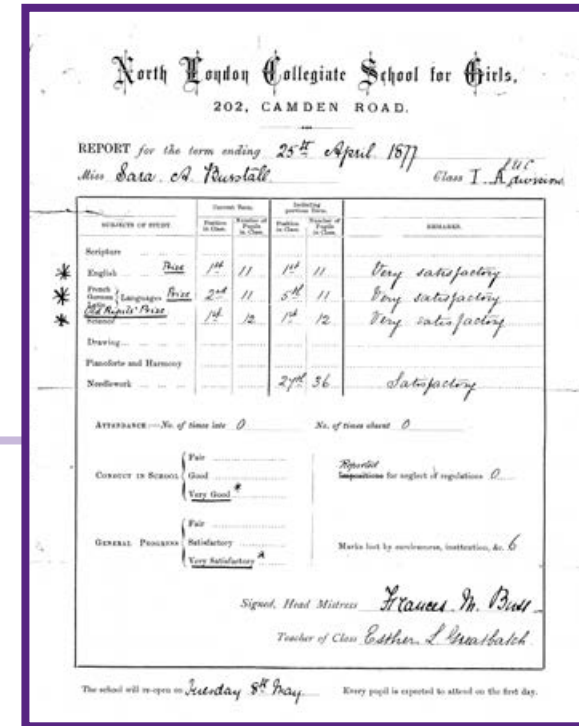 North London Collegiate School for Girls,
202, CAMDEN ROAD.
REPORT for the term ending 25th April 1877
Miss Sara A. Burstall Class I A division
SUBJECTS OF STUDY. Current Term. Including previous Term. REMARKS.
Position in Class. Number of Pupils in Class. Position in Class. Number of Pupils in Class.
Scripture
* English Prize 1st 11 1st 11 Very satisfactory
* French German Latin } Languages Prize 2nd 11 5th 11 Very satisfactory
Old Pupils' Prize
* Science 1st 12 1st 12 Very satisfactory
Drawing
Pianoforte and Harmony
Needlework 27th 36 Satisfactory
ATTENDANCE:—No. of times late 0 No. of times absent 0
CONDUCT IN SCHOOL { Fair
Good
Very Good *
Reported
Impositions for neglect of regulations 0
GENERAL PROGRESS { Fair
Satisfactory
Very Satisfactory *
Marks lost by carelessness, inattention, &c. 6
Signed, Head Mistress Frances M. Buss
Teacher of Class Esther L Greatbatch
The school will re-open on Tuesday 8th May. Every pupil is expected to attend on the first day.